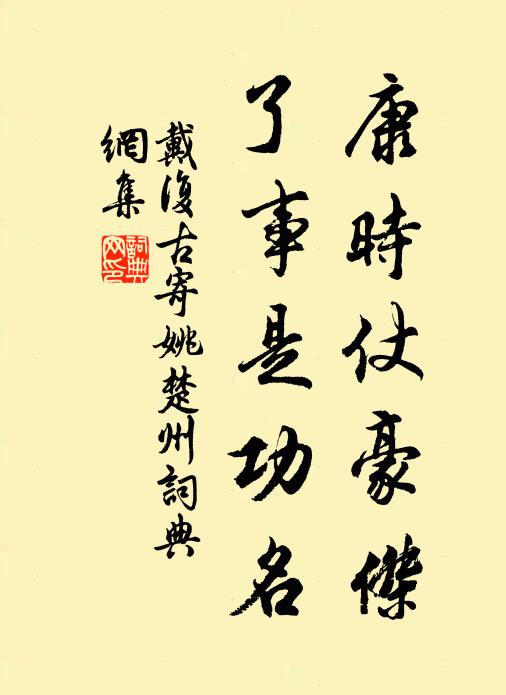 康時仗豪傑
了事是功名
戴復古寄姚楚州詞典
網集
詞典
网印